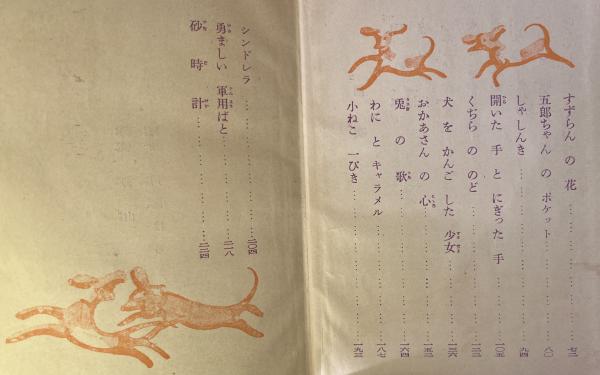 すずらん の 花 ………… 七二
五郎ちゃん の ポケット ………… 八〇
しゃしんき ………… 九四
開いた 手 と にぎった 手 ………… 一〇五
くぢら の のど ………… 一二二
犬 を かんご した 少女 ………… 一三六
おかあさん の 心 ………… 一五二
兎 の 歌 ………… 一六四
わに と キャラメル ………… 一八七
小ねこ 一ぴき ………… 一九三
シンドレラ ………… 二〇四
勇ましい 軍用ばと ………… 二一八
砂時計 ………… 二二四